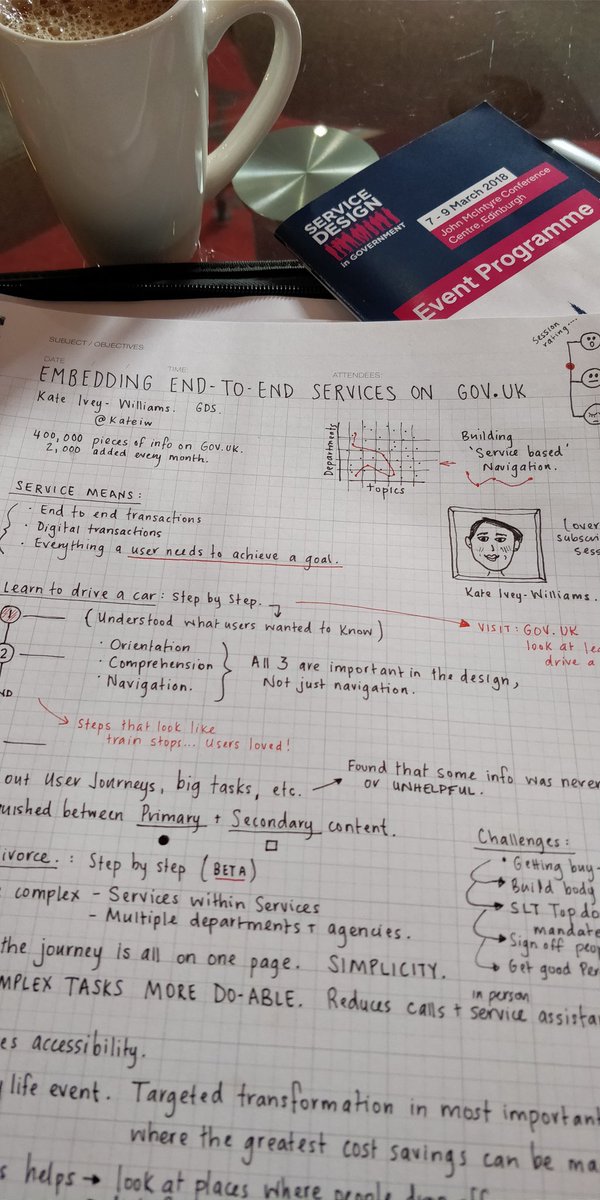 SERVICE
DESIGN
in GOVERNMENT
7 - 9 March 2018
John McIntyre Conference
Centre, Edinburgh
Event Programme
SUBJECT / OBJECTIVES:
DATE
TIME
ATTENDEES
EMBEDDING END-TO-END SERVICES ON GOV.UK
Session
rating....
Kate Ivey-Williams. GDS.
@Kateiw
400,000 pieces of info on GOV.UK.
2,000 added every month.
Departments
Topics
Building
'Service based'
Navigation.
SERVICE MEANS:
· End to end transactions
· Digital transactions
· Everything a user needs to achieve a goal.
Kate Ivey-Williams.
Learn to drive a car: Step by Step.
(Understood what users wanted to know)
2
· Orientation
· Comprehension
· Navigation.
All 3 are important in the design,
Not just navigation.
VISIT: GOV.UK
look at
drive a
Steps that look like
train stops... users loved!
out User Journeys, big tasks, etc.
Found that some info was never
or UNHELPFUL.
between Primary + Secondary content.
: Step by step (BETA)
complex - Services within Services
- Multiple departments + agencies.
the journey is all on one page. SIMPLICITY.
TASKS MORE DO-ABLE. Reduces calls + in person service
accessibility.
Challenges:
· Getting
Build body
SLT Top
Sign off
Get good
life event. Targeted transformation in most important
where the greatest cost savings can be
helps → look at places where people